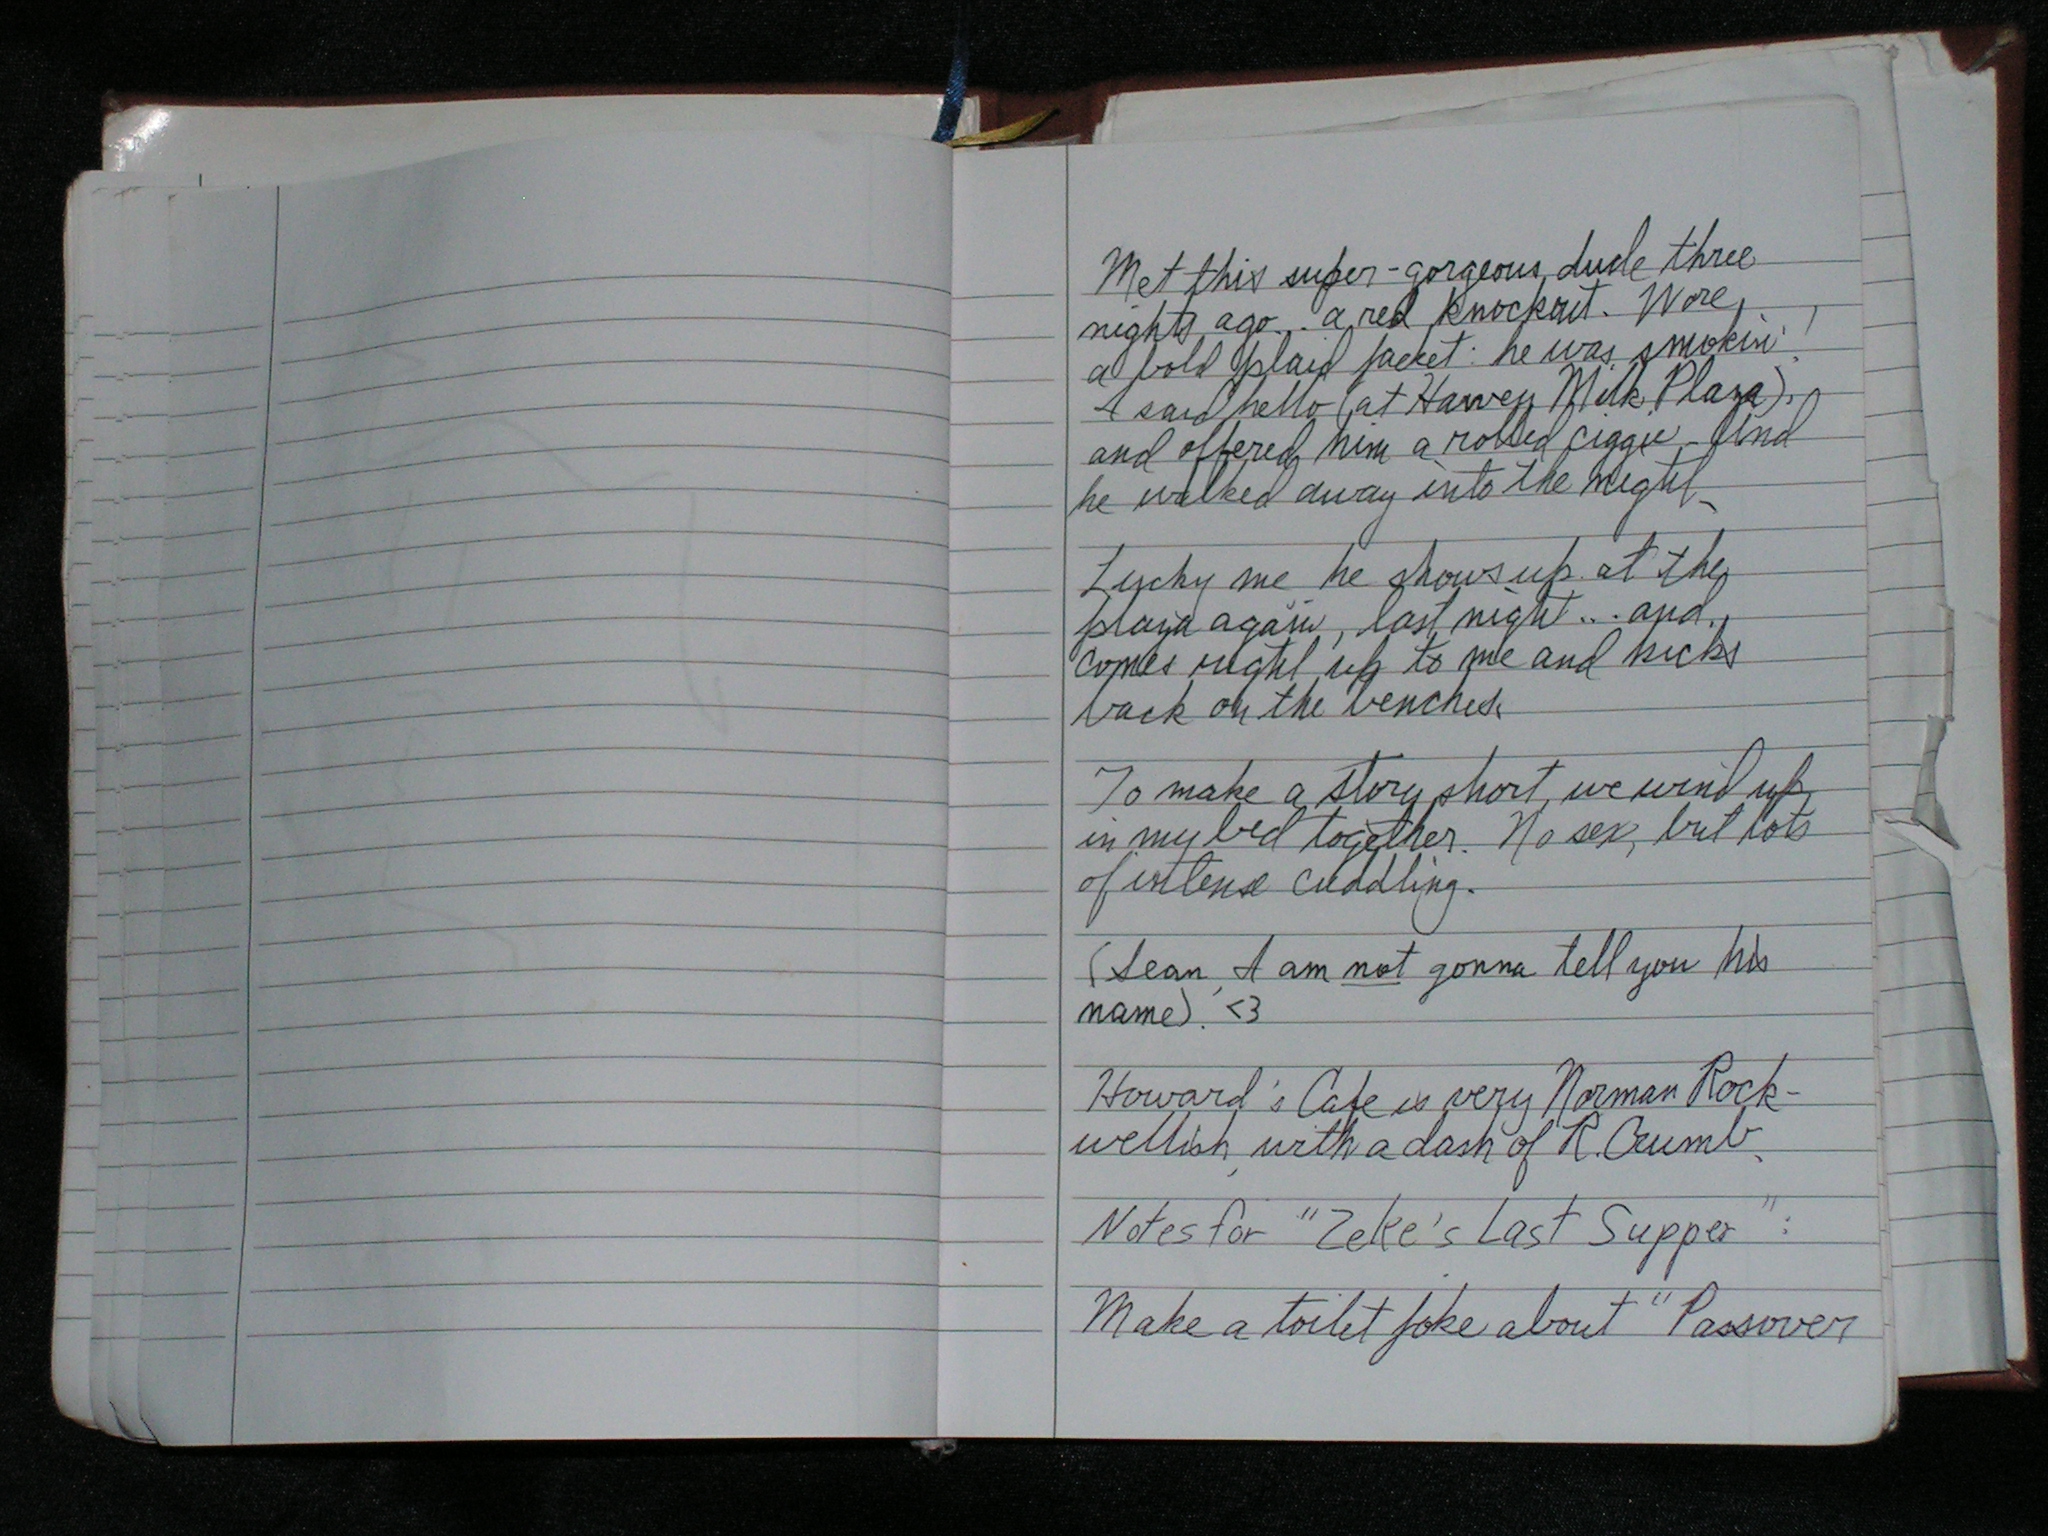 Met this super-gorgeous dude three
nights ago... a red knockout. Wore
a bold plaid jacket: he was smokin'!
I said hello (at Harvey Milk Plaza),
and offered him a rolled ciggie. And
he walked away into the night.
Lucky me he shows up at the
plaza again, last night... and
comes right up to me and kicks
back on the benches.
To make a story short, we wind up
in my bed together. No sex, but lots
of intense cuddling.
(Sean, I am not gonna tell you his
name). <3
Howard's Cafe is very Norman Rock-
wellish, with a dash of R. Crumb.
Notes for "Zeke's Last Supper":
Make a toilet joke about "Passover